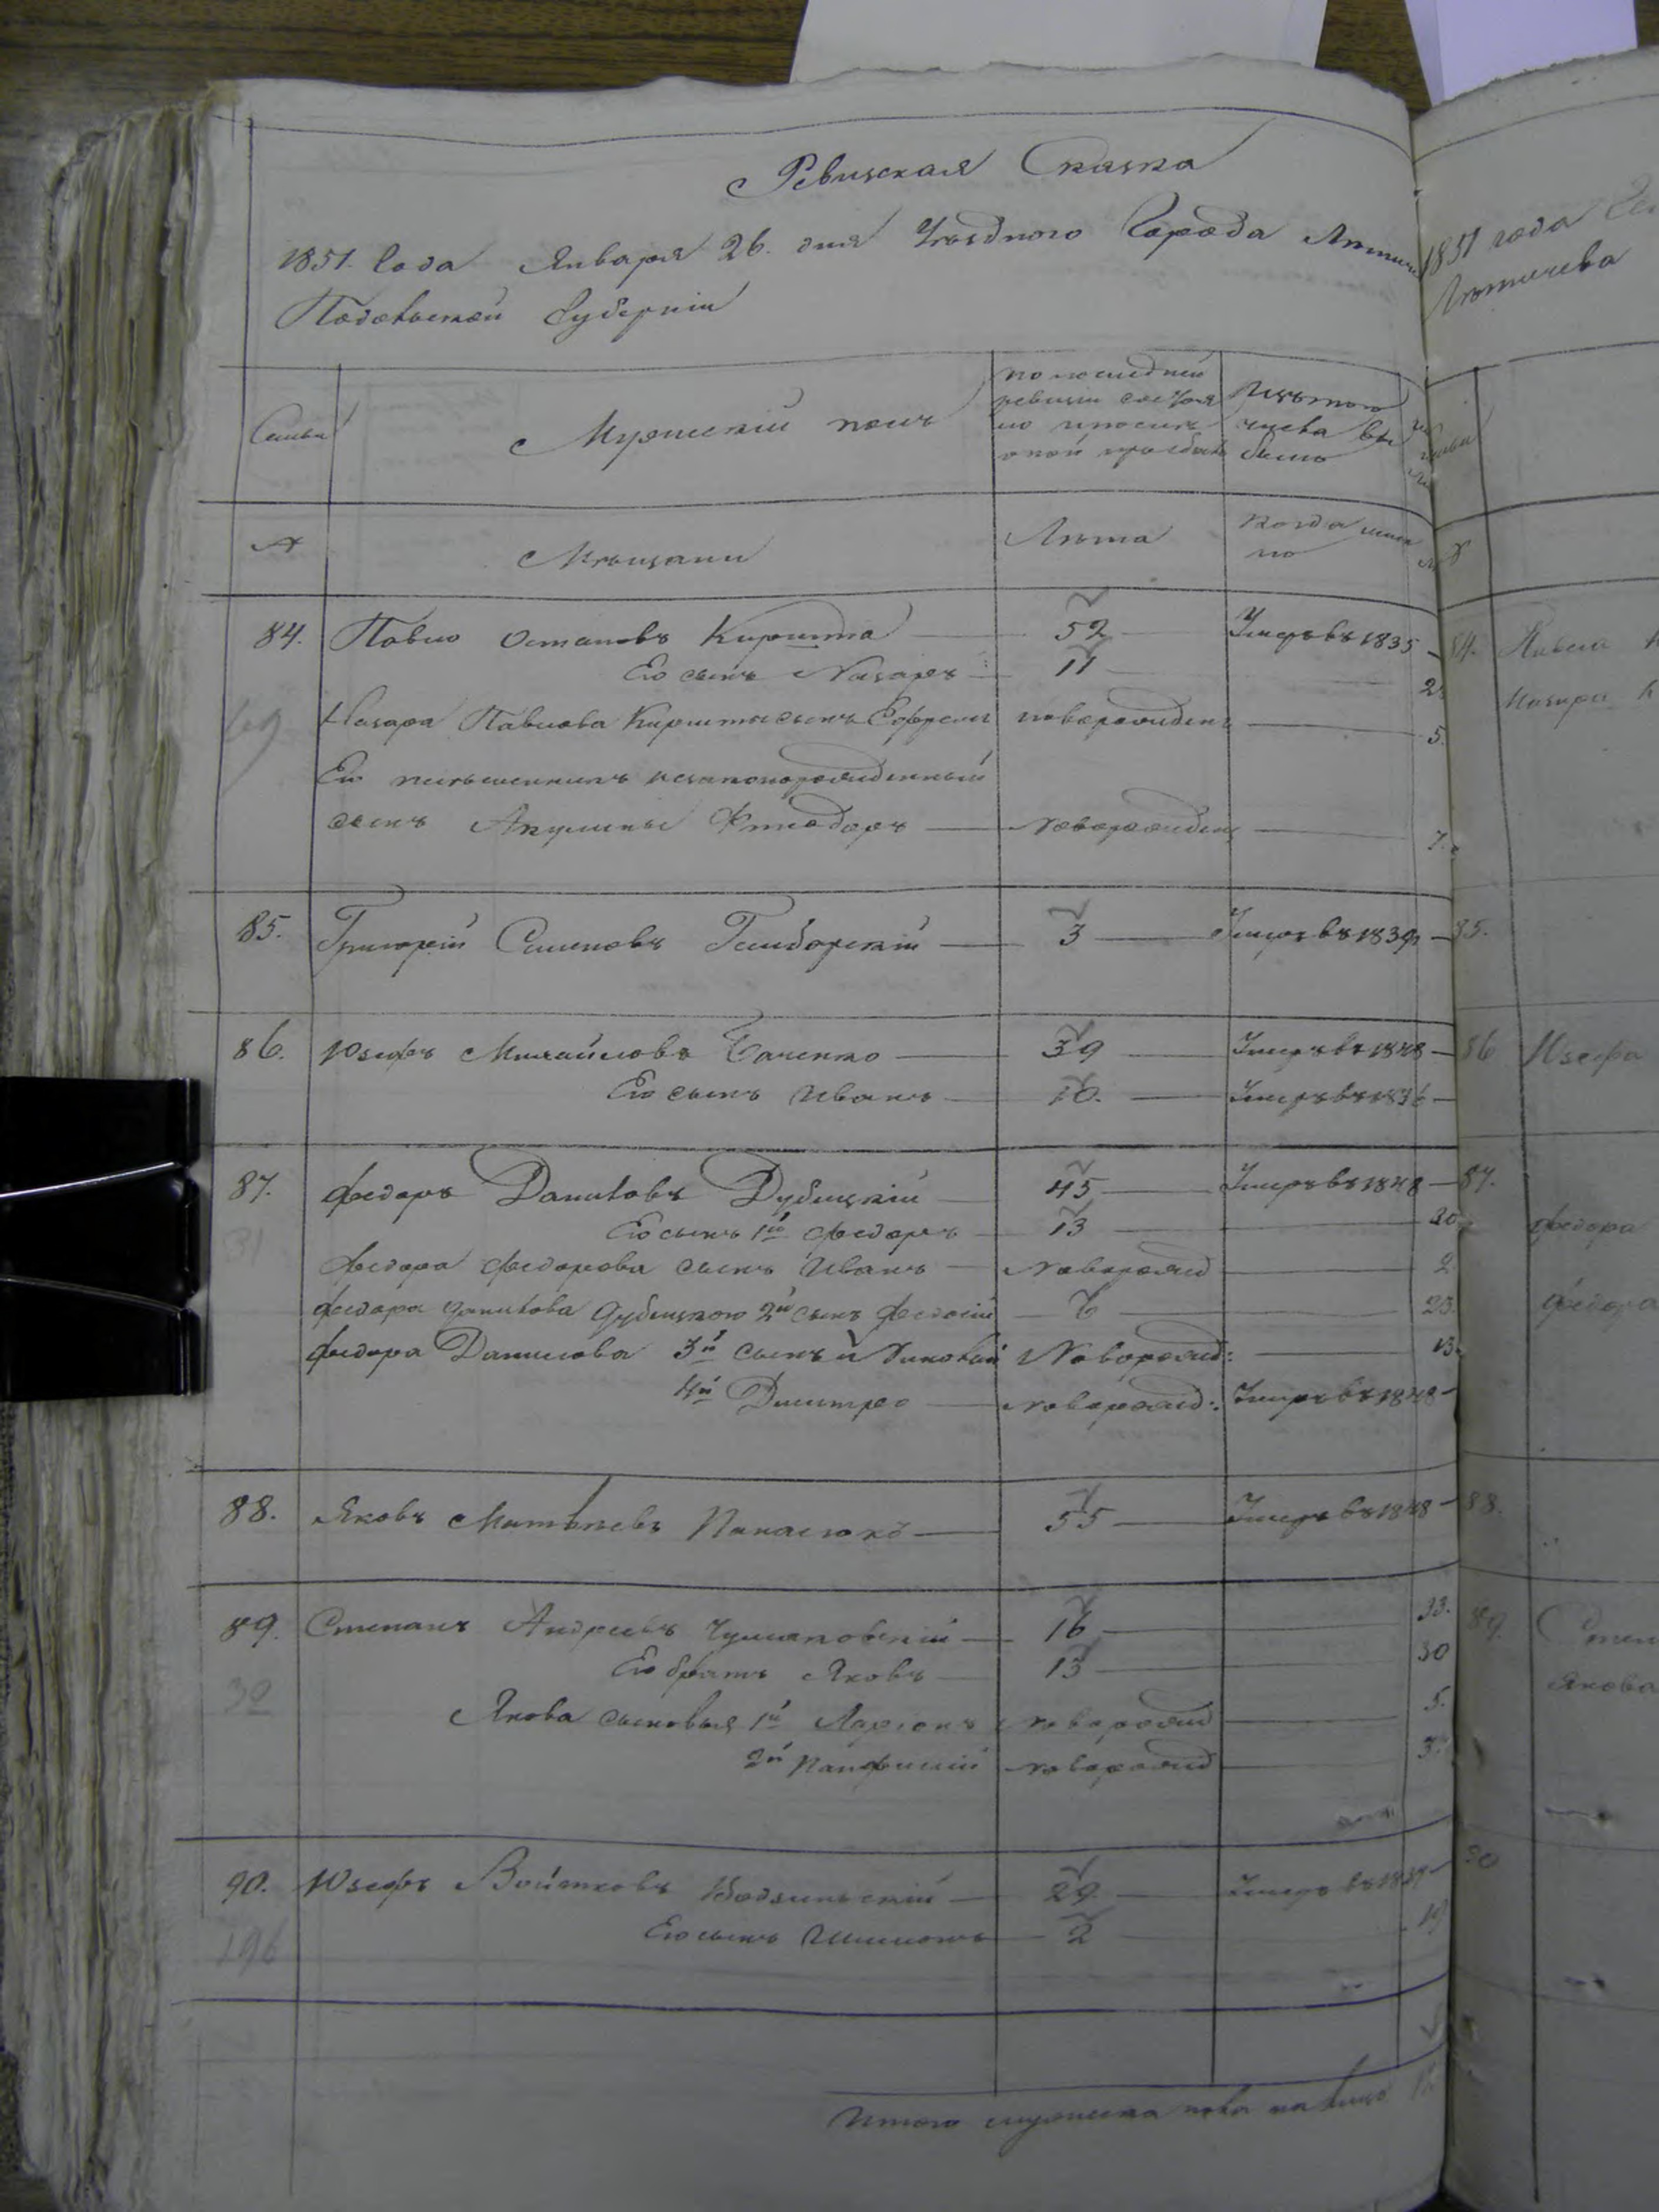 Ревизская Сказка
1851. Года Января 26. дня Уѣзднаго Города Летиче
Подольской Губерніи
Семьи
Мужескій полъ
По последней
ревизіи состоя
ло и после
оной прибыло
Изъ того
числа вы
было
А
Мѣщани
Лѣта
Когда имян
но
84. Павло Остаповъ Киришта 52 Умеръ въ 1835
Его сынъ Назаръ 11 2
Назара Павлова Киришты сынъ Ефремъ новорожденъ 5.
Его племенникъ незаконорожденный
сынъ Акулины Ѳтеодоръ новорожден 7.
85. Григорій Семеновъ Гембарскій 3 Умеръ въ 1839
86. Юзефъ Михайловъ Баченко 39 Умеръ въ 1848
Его сынъ Иванъ 10. Умеръ въ 1836
87. Федоръ Даниловъ Дубицкій 45 Умеръ въ 1848
31
Его сынъ 1й Федоръ 13 30
Федора Федорова сынъ ИванъНоворожд 2
Федора Данилова Дубицкого 2й сынъ Федосій 6 23.
Федора Данилова 3й сынъ Зиновій Новорожд: 13
4й Дмитро новорожд: Умеръ въ 1848
88. Яковъ Матвѣевъ Панасюкъ 55 Умеръ въ 1848
89. Степанъ Андреевъ Чумаковскій 16 33.
Его братъ Яковъ 13 30
32
Якова сыновья 1й Ларіонъ новорожд 5.
2й Панфилій новорожд 3.
90. Юзефъ Войтковъ Водзинскій 29 Умеръ въ 1839
Его сынъ Шимонъ 2 19
196
Итого мужеска пола на лицо
1851 года
Летичева
84. Павла
Назара
85.
86 Юзефа
87.
Федора
Федора
88.
89. Степ
Якова
90